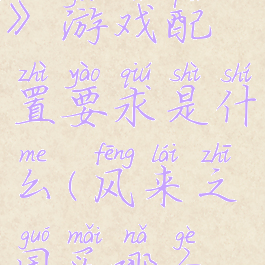 》游戏配
zhì yào qiú shì shí
置要求是什
me fēng lái zhī
么(风来之
guó mǎi nǎ gè
国买哪个